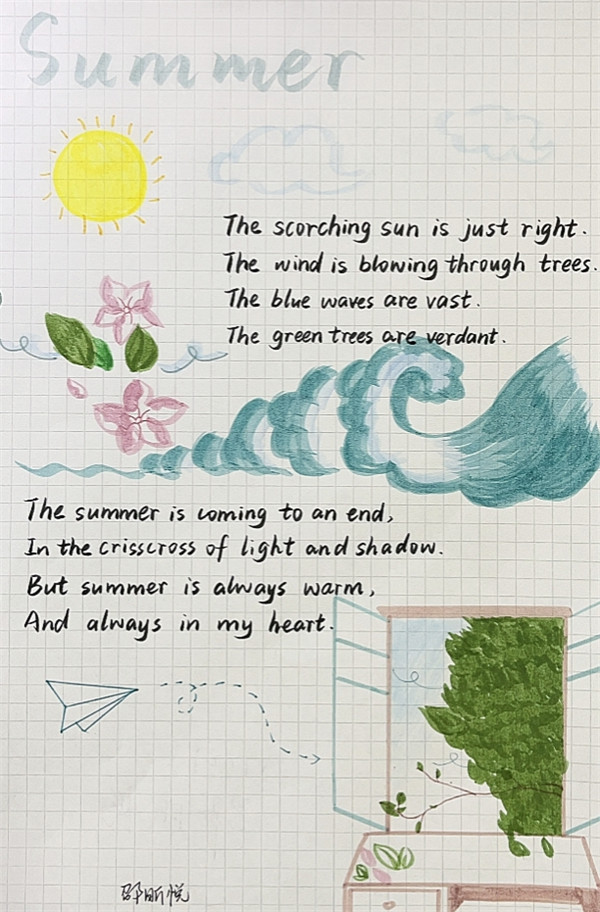 Summer
The scorching sun is just right.
The wind is blowing through trees.
The blue waves are vast.
The green trees are verdant.
The summer is coming to an end,
In the crisscross of light and shadow.
But summer is always warm,
And always in my heart.
邵昕悦